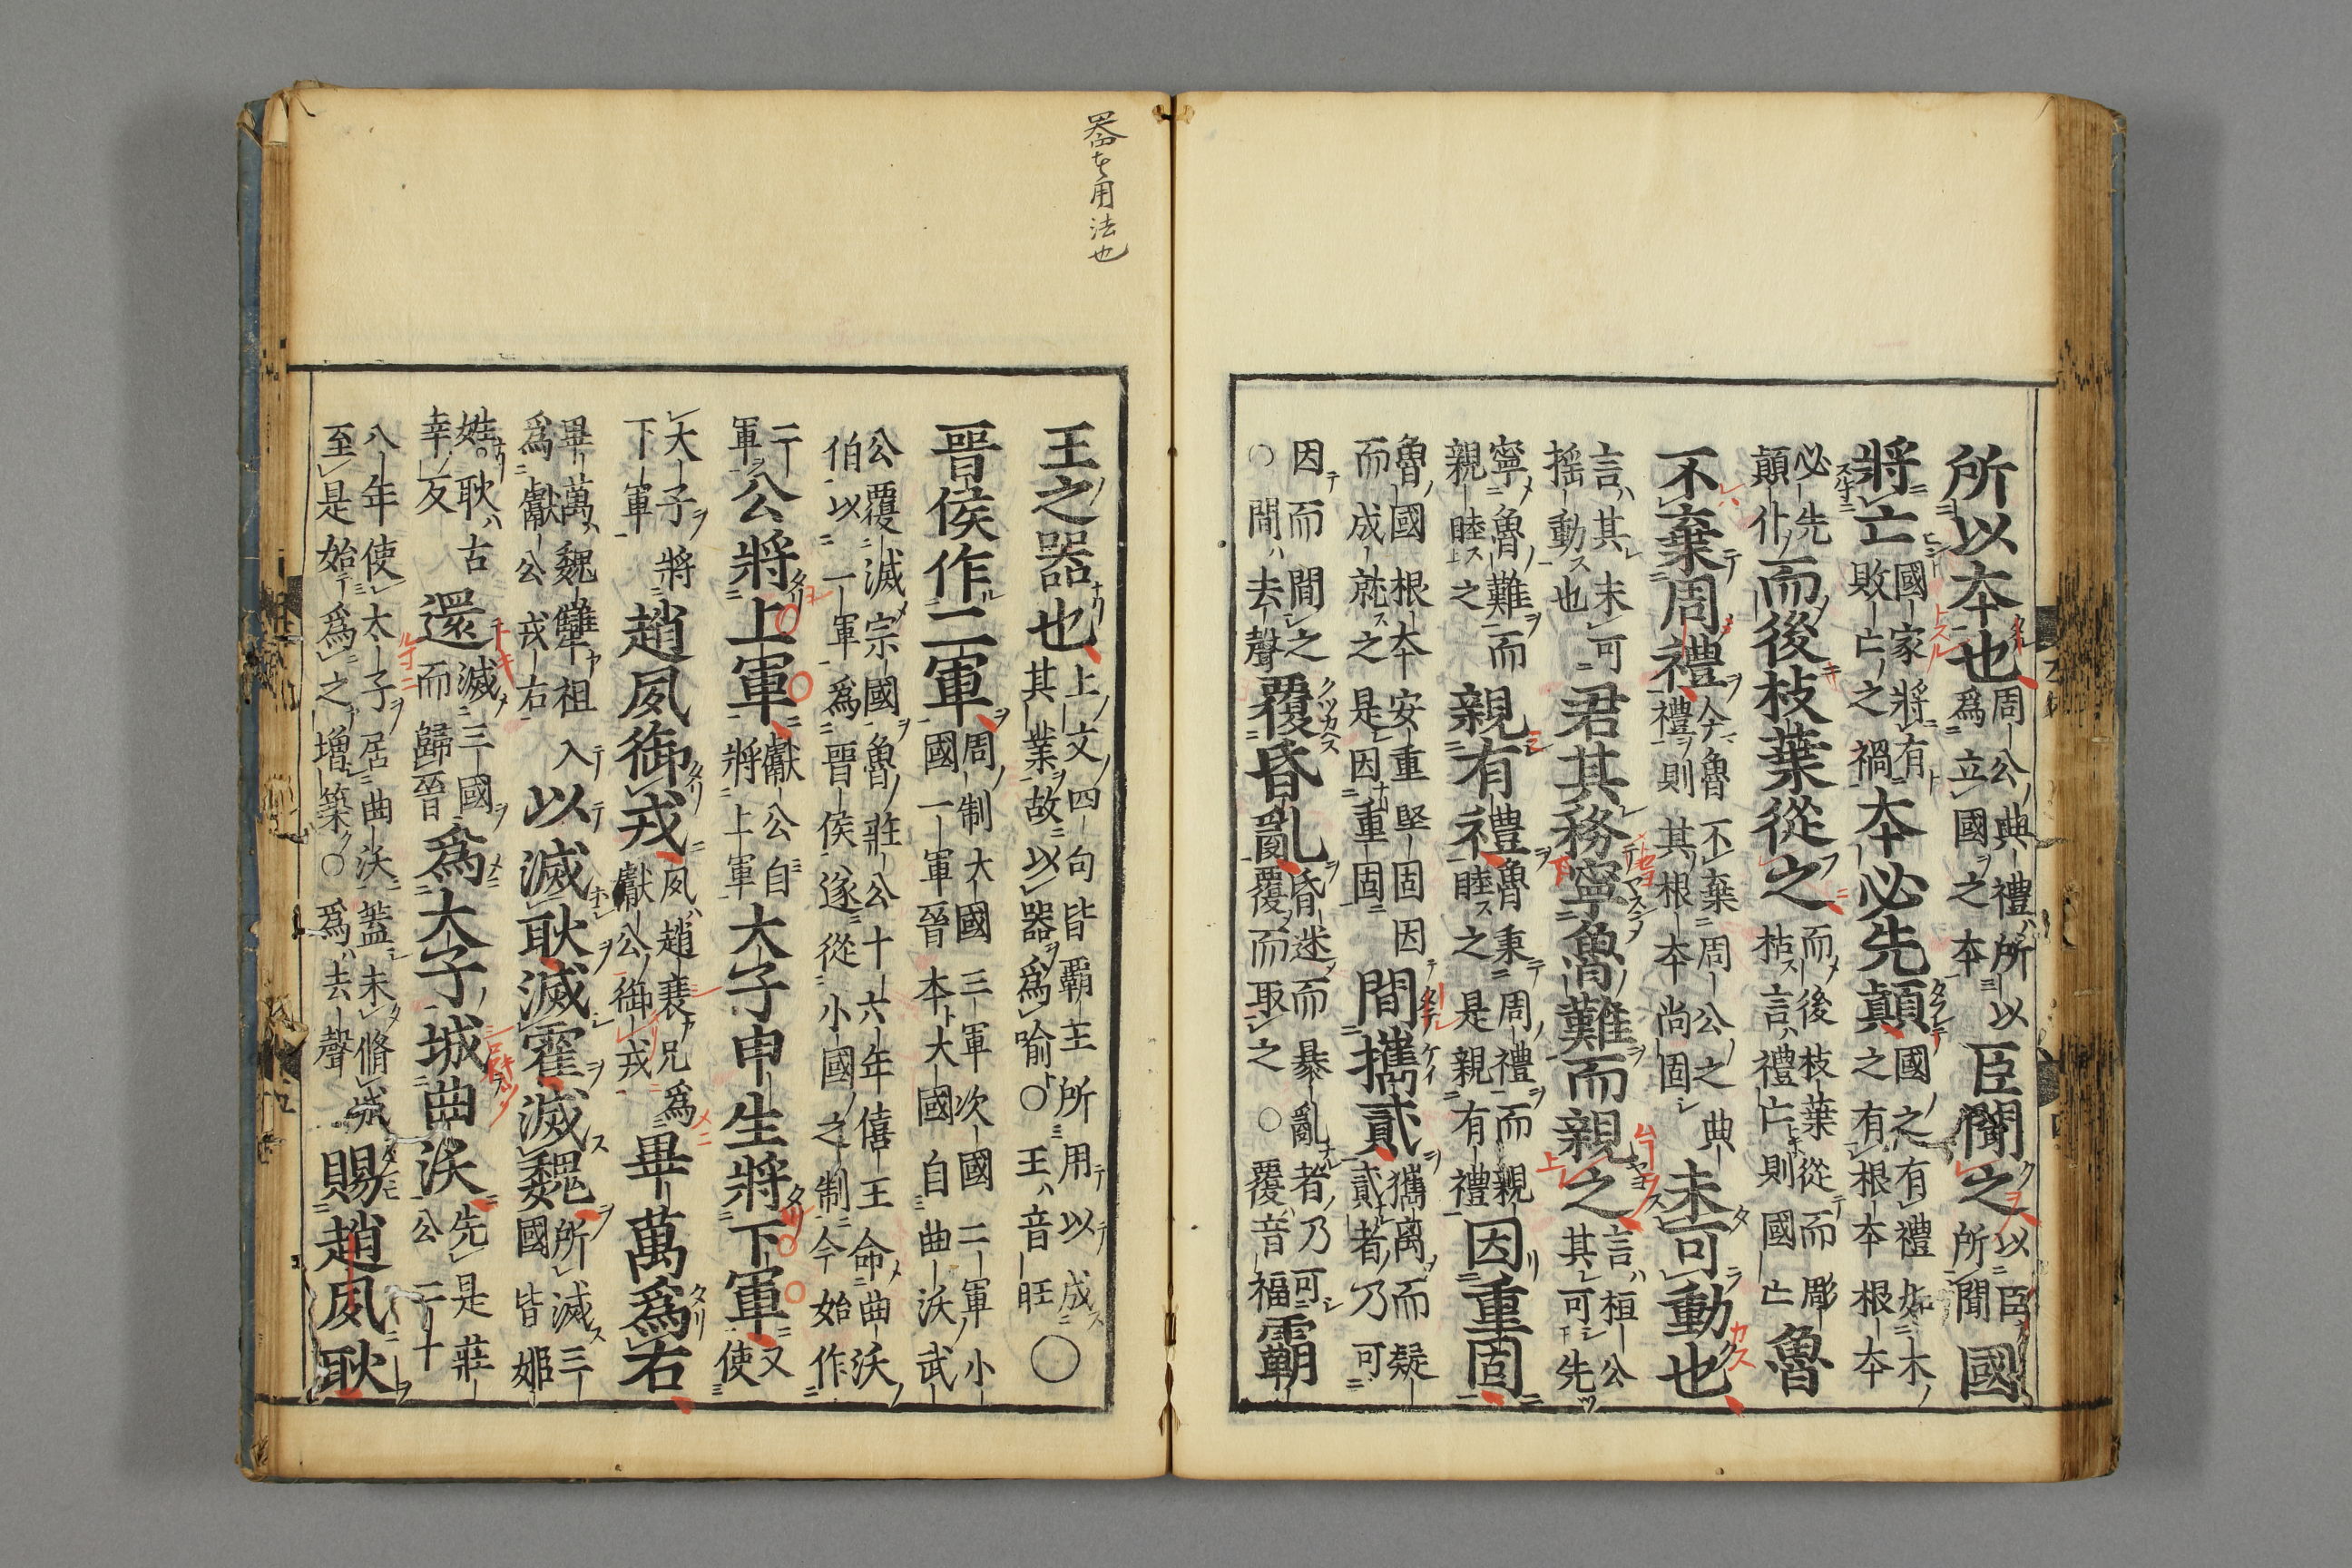 所以本也周公典禮所以爲立國之本臣聞之以臣所聞國
將亡國家將有敗亡之禍本必先顛國之有禮如木之有根本根本
必先顛仆而後枝葉從之而後枝葉從而彫枯言禮亡則國亡魯
不棄周禮今魯不棄周公之典禮則其根本尚固未可動也
言其未可搖動也君其務寧魯難而親之言桓公其可先
寧魯難而親睦之親有禮魯秉周禮而親睦之是親有禮因重固
魯國根本安重堅固因而成就之是因重固間攜貳攜離而疑貳者乃可
因而間之○間去聲覆昏亂昏迷而暴亂者乃可覆而取之○覆音福霸
王之器也上文四句皆覇主所用以成其業故以器爲喻○王音旺○
晉侯作二軍周制大國三軍次國二軍小國一軍晉本大國自曲沃武
公覆滅宗國魯莊公十六年僖王命曲沃伯以一軍爲晉侯遂從小國之制今始作
二軍公將上軍獻公自將上軍大子申生將下軍又使
大子將下軍趙夙御戎夙趙衰兄爲獻公御戎畢萬爲右
畢萬魏犨祖爲獻公戎右入以滅耿滅霍滅魏所滅三國皆姬
姓耿古幸反還滅三國而歸晉爲大子城曲沃先是莊公二十
八年使太子居曲沃蓋未脩城至是始爲之增築○爲去聲賜趙夙耿
器者用法也